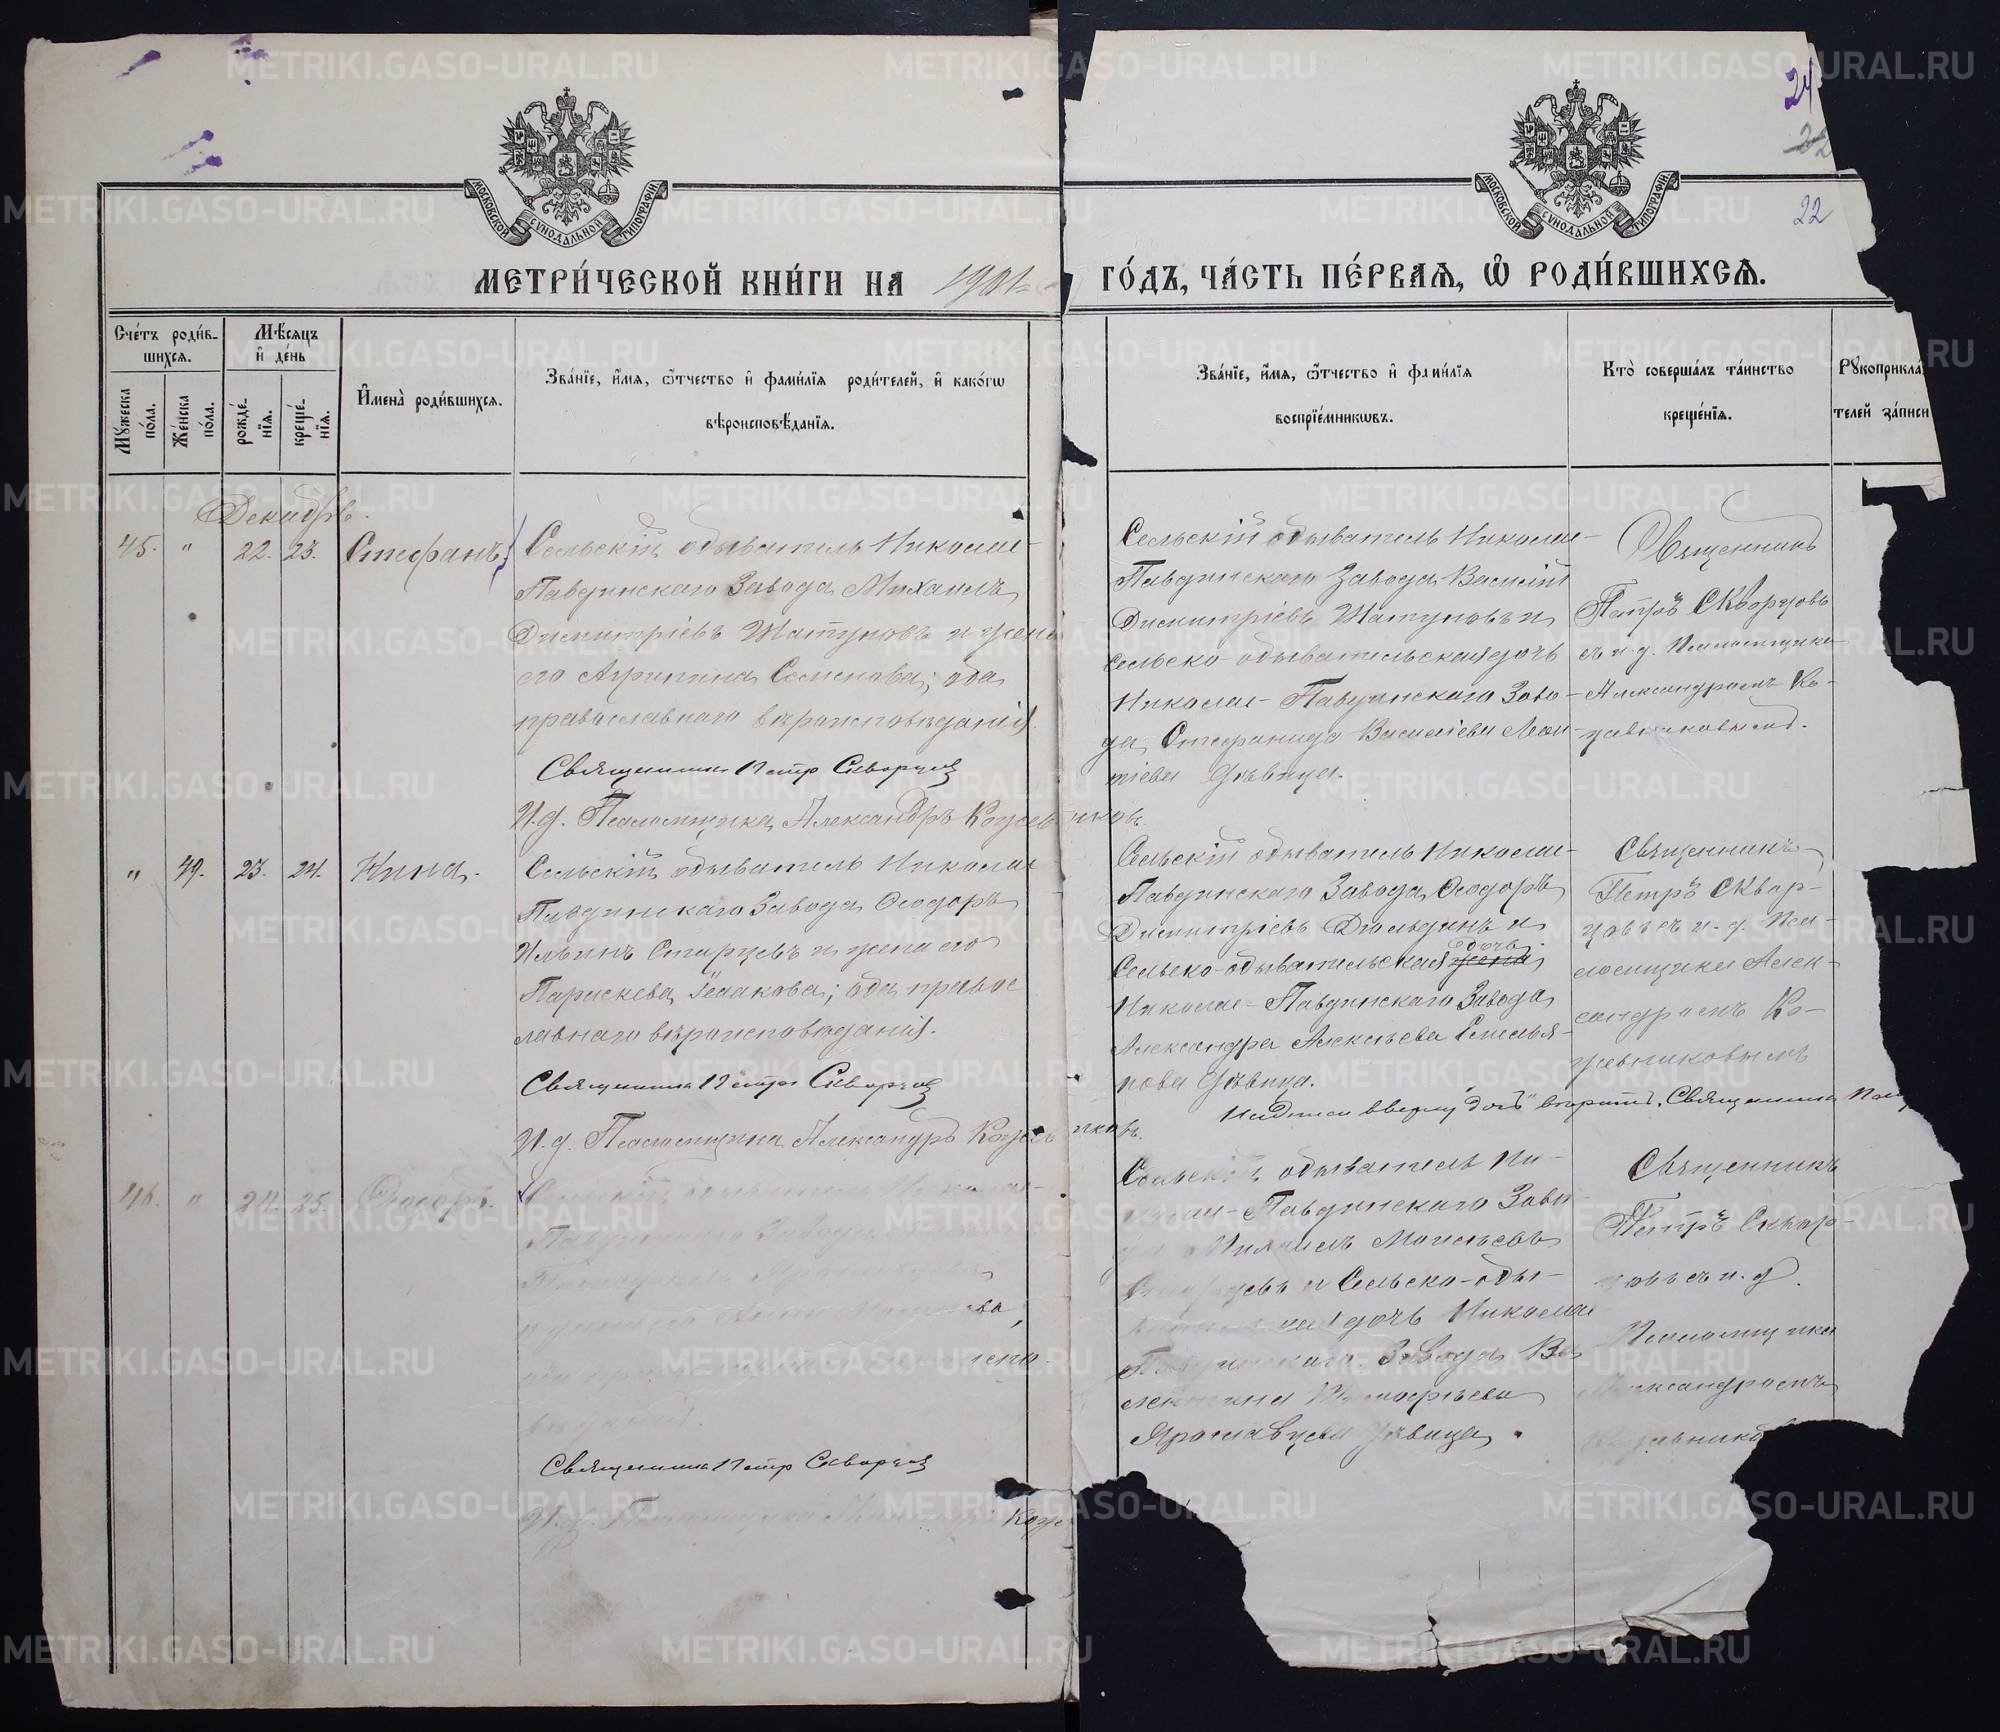 24
22
22
МОСКОВСКОЙ СѴНОДАЛЬНОЙ ТИПОГРАФІИ
МОСКОВСКОЙ СѴНОДАЛЬНОЙ ТИПОГРАФІИ
МЕТРИ́ЧЕСКОЙ КНИ́ГИ НА 1901
ГО́ДЪ, ЧА́СТЬ ПЕ́РВАѦ, Ѽ РОДИ́ВШИХСѦ.
Сче́тъ роди́вшихсѧ.
Мꙋжеска по́ла.
Же́нска по́ла.
Мѣ́сяцъ и҆ де́нь
рожде́нїѧ.
креще́нїѧ.
И҆мена̀ роди́вшихсѧ.
Зва́нїе, и҆́мѧ, ѻ҆́тчество и҆ фами́лїѧ роди́телей, и҆ како́гѡ
вѣроисповѣ́данїѧ.
Зва́нїе, и҆́мѧ, ѻ҆́тчество и҆ фами́лїѧ
воспрїе́мникѡвъ.
Кто̀ соверша́лъ та́инство
креще́нїѧ.
Рꙋкоприкла
телей за́писи
Декабрь.
45. " 22. 23. Стефанъ
Сельскій обыватель Николае-
Павдинскаго Завода Михаилъ
Димитріевъ Шатуновъ и жена
его Агрипина Семенова; оба
православнаго вѣроисповѣданія.
Священникъ Петр Скворцов
И. д. Псаломщика Александръ Кожевниковъ.
Сельскій обыватель Николае-
Павдинскаго Завода Василій
Димитріевъ Шатуновъ и
сельско-обывательская дочь
Николае-Павдинскаго Заво-
да Стефанида Василіева Леон-
тіева дѣвица.
Священникъ
Петръ Скворцовъ
съ и. д. Псаломщика
Александромъ Ко-
жевниковымъ.
" 49. 23. 24. Нина.
Сельскій обыватель Николае
Павдинскаго Завода Ѳеодоръ
Ильинъ Старцевъ и жена его
Параскева Іѡакова; оба правос
лавнаго вѣроисповѣданія.
Священникъ Петр Скворцов
И. д. Псаломщика Александръ Кожевниковъ.
Сельскій обыватель Николае-
Павдинскаго Завода Ѳеодоръ
Димитріевъ Дюльдинъ и
дочь
Сельско-обывательская жена
Николае-Павдинскаго Завода
Александра Алексѣева Емелья-
нова дѣвица.
Надписи вверху "дочь" вѣрить. Священникъ
Священникъ
Петръ Сквор-
цовъ съ и. д. Пса-
ломщика Алек-
сандромъ Ко-
жевниковымъ
46. " 24. 25. Ѳеодоръ.
Сельскій обыватель Николае-
Павдинскаго Завода
и жена его
вѣданія.
Священникъ Петр Скворцов
И. д. Псаломщика
Сельскій обыватель Ни-
колае-Павдинскаго Заво-
да Михаилъ Моисѣевъ
Старцевъ и Сельско-обы-
вательская дочь Николае
Павдинскаго Завода Ва
лентина Тимофѣева
Ярославцева дѣвица.
Священникъ
Петръ Сквор-
цовъ съ и. д.
Псаломщика
Александромъ
Кожевников
METRIKI.GASO-URAL.RU